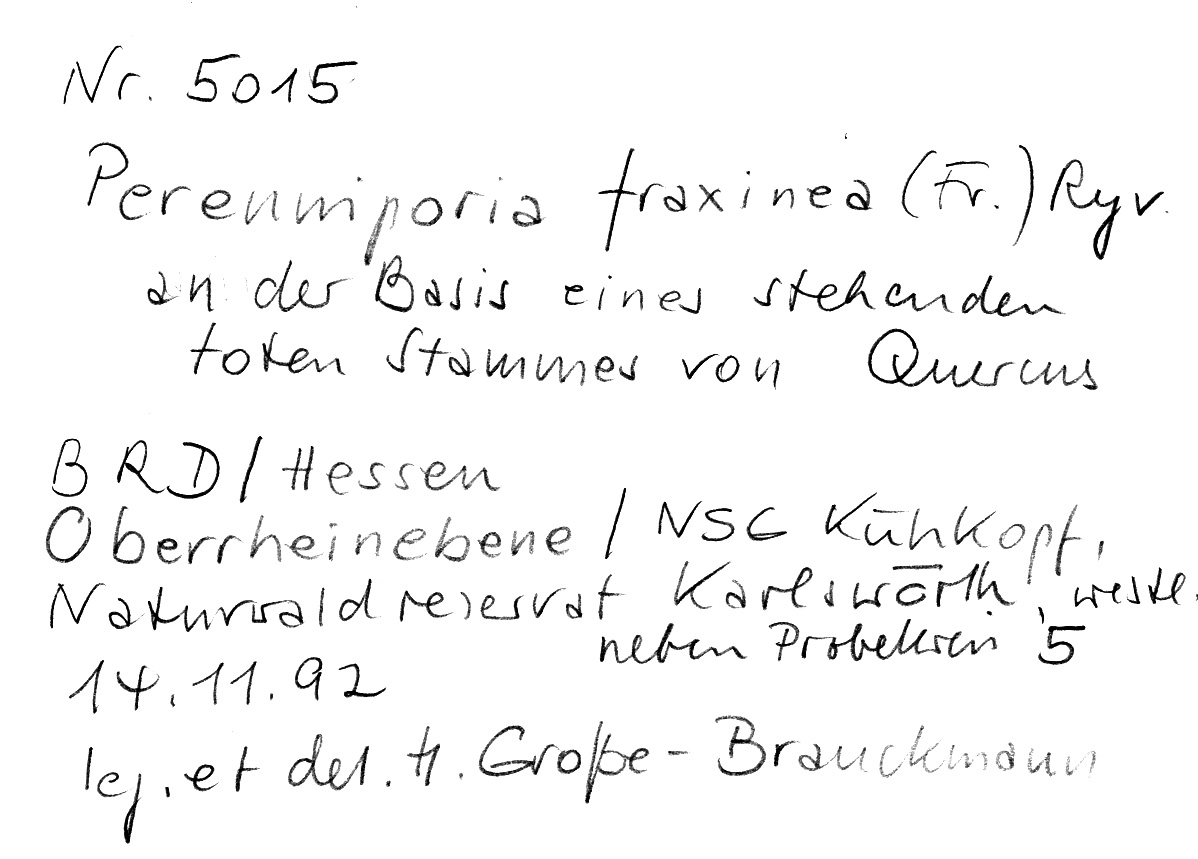 Nr. 5015
Perenniporia fraxinea (Fr.) Ryv.
an der Basis eines stehenden
toten Stammes von Quercus
BRD / Hessen
Oberrheinebene / NSG Kühkopf,
Naturwaldreservat Karlswörth, westl.
neben Probekreis 5
14.11.92
leg. et det. H. Große-Brauckmann